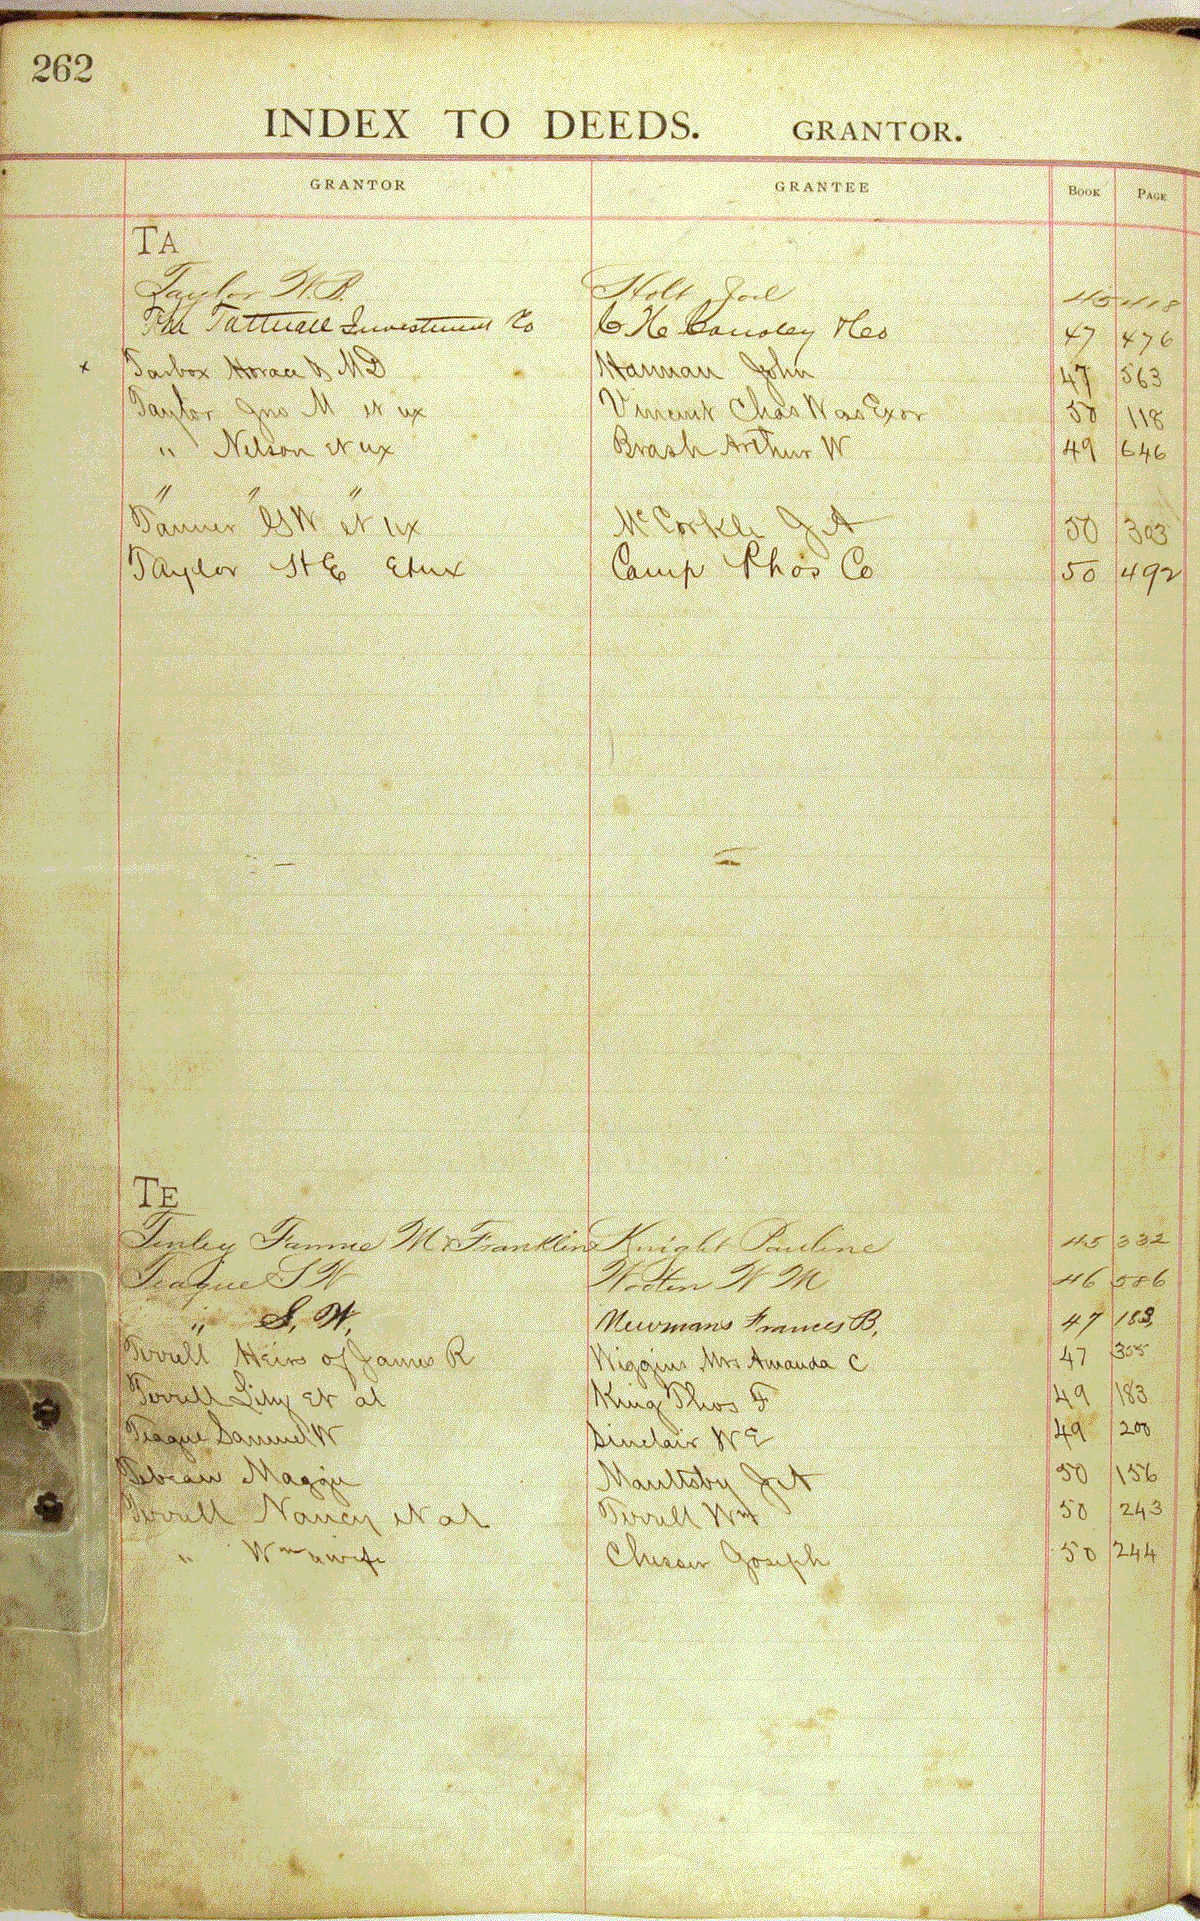 262
INDEX TO DEEDS. GRANTOR.
GRANTOR GRANTEE BOOK PAGE
TA
Taylor W.B. Holt Joel 45 418
The Tattnall Investment Co C H 47 476
x Tarbox Horace & MD Harman John 47 563
Taylor Jno M et ux Vincent Chas W as Exor 50 118
" Nelson et ux Brash Arthur W 49 646
" " "
Tanner G W et ux McCorkle J A 50 303
Taylor H E Etux Camp Phos Co 50 492
TE
Fannie M & Franklin Knight Pauline 45 332
Teague S W Wooten W M 46 586
" S. W. Newmans Frances B. 47 183
Terrell Heirs of James R Wiggins Mrs Amanda C 47 355
Terrell Lily et al King Thos F 49 183
Teague Samuel W Sinclair W E 49 200
Tebeau Maggie Maultsby J A 50 156
Terrell Nancy et al Terrell Wm 50 243
" Wm & wife Chesser Joseph 50 244